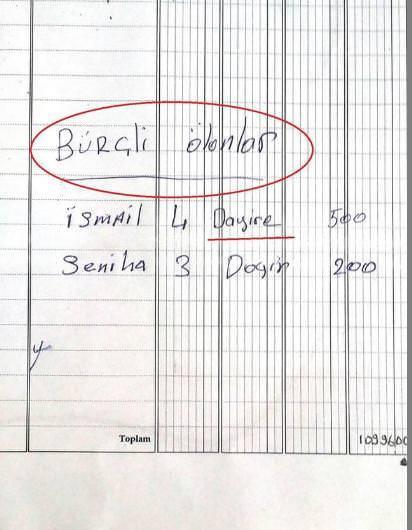 BÜRÇli ölanlar
İSMAİL 4 Dayire 500
Seniha 3 Dayir 200
y
Toplam 1099600